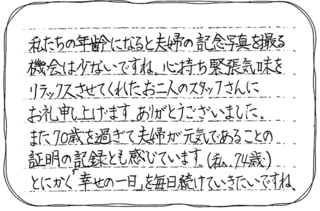 私たちの年齢になると夫婦の記念写真を撮る
機会は少ないですね。心持ち緊張気味を
リラックスさせてくれたお二人のスタッフさんに
お礼申し上げます。ありがとうございました。
また70歳を過ぎて夫婦が元気であることの
証明の記録とも感じています。(私、74歳)
とにかく「幸せの一日」を毎日続けていきたいですね。